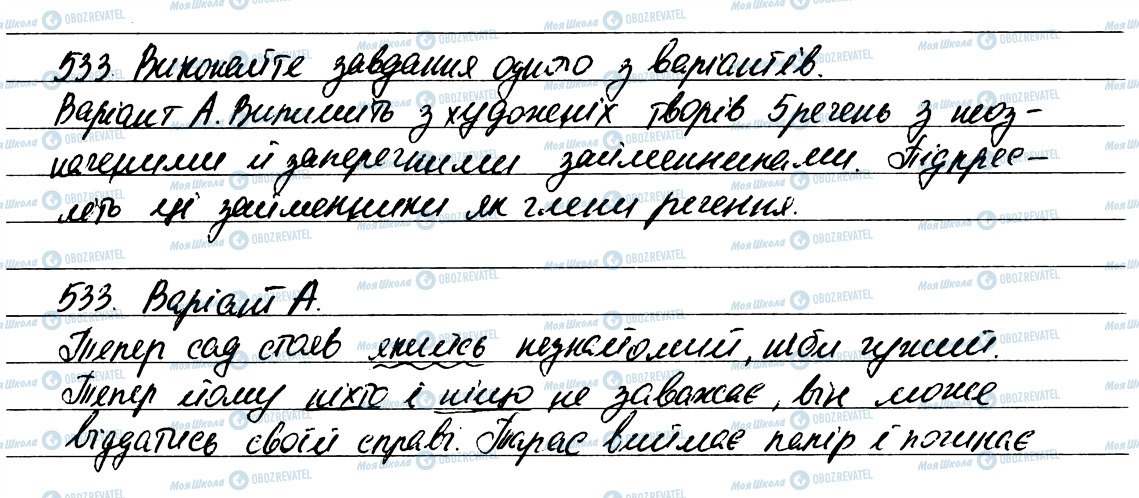 533. Виконайте завдання одного з варіантів.
Варіант А. Випишіть з художеніх творів 5 речень з неоз-
наченими й заперечними займенниками. Підкрес-
літь ці займенники як члени речення.
533. Варіант А.
Тепер сад стояв якийсь незнайомий, ніби чужий.
Тепер йому ніхто і ніщо не заважає, він може
віддатись своїй справі. Тарас виймає папір і починає